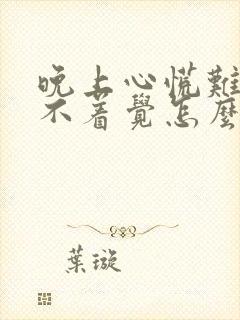 晚上心慌難
不著覺怎麼
葉璇